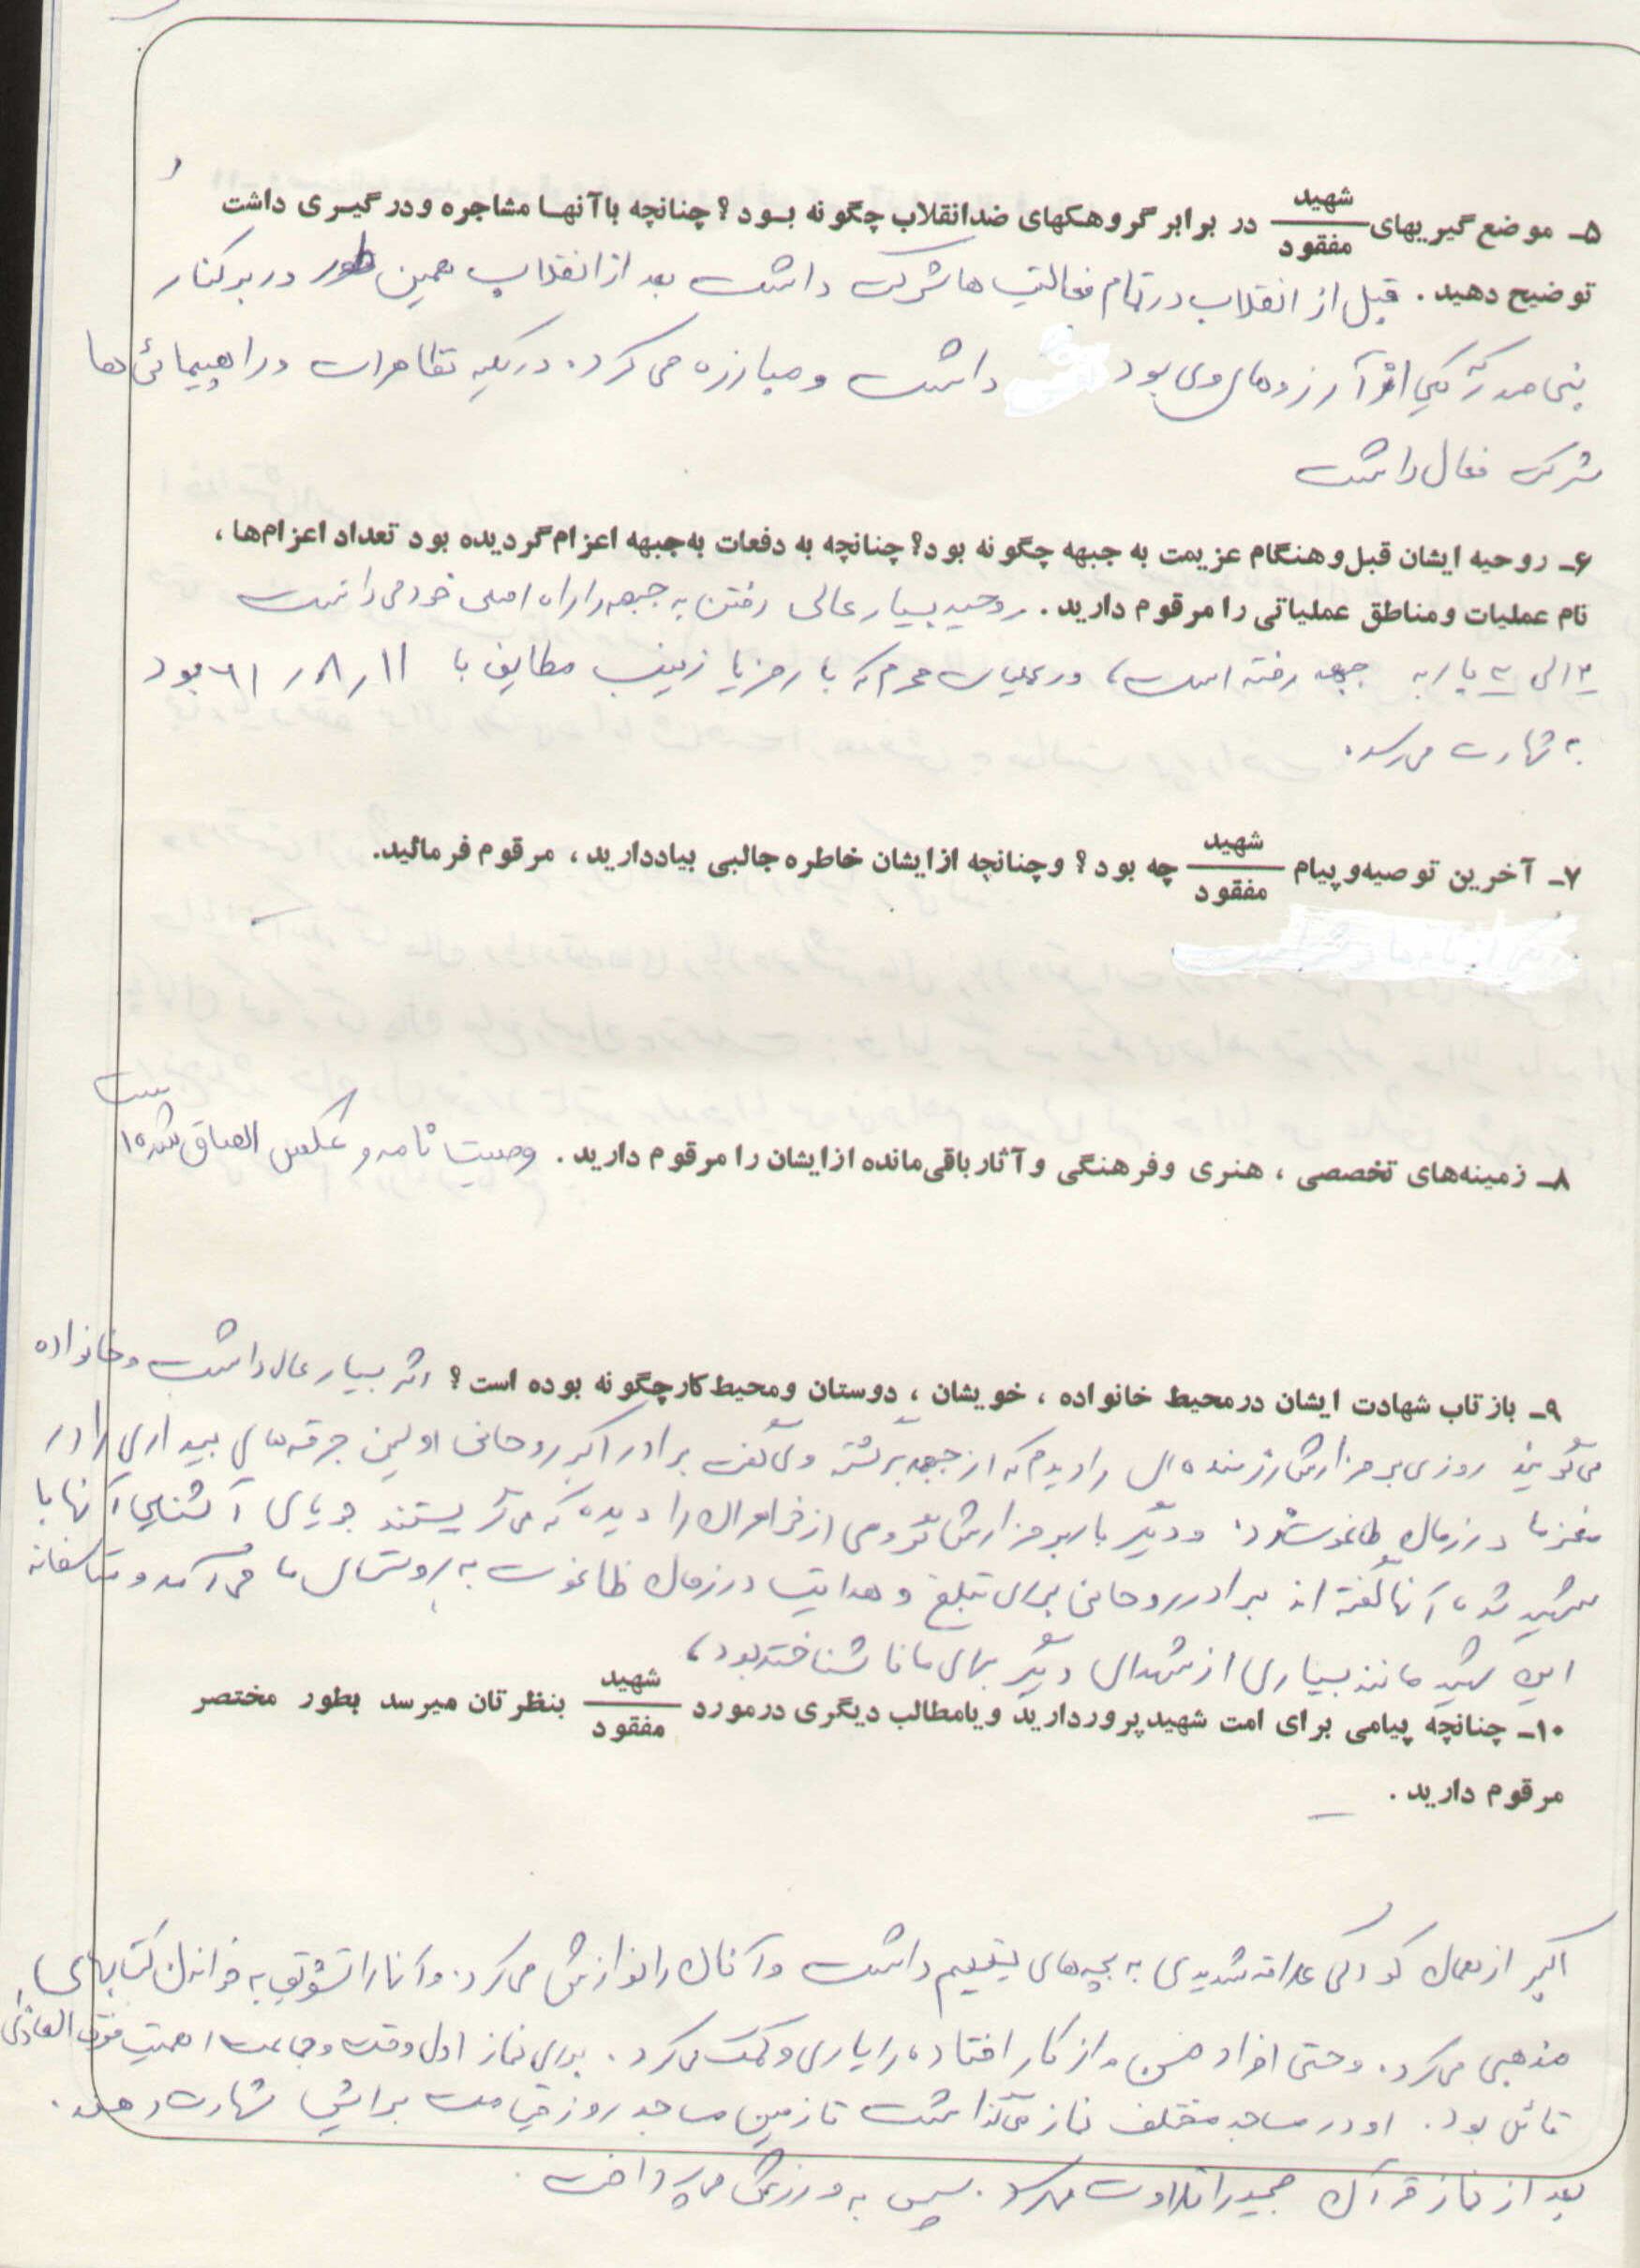 ۵ـ موضع گیریهای شهید/مفقود در برابر گروهکهای ضدانقلاب چگونه بود؟ چنانچه باآنها مشاجره ودرگیری داشت
توضیح دهید. قبل از انقلاب در تمام فعالیت ها شرکت داشت بعد از انقلاب همین طور در برکناری
بنی صدر که یکی از آرزوهای وی بود داشت و مبارزه می کرد. در کلیه تظاهرات و راهپیمائی ها
شرکت فعال داشت
۶ـ روحیه ایشان قبل وهنگام عزیمت به جبهه چگونه بود؟ چنانچه به دفعات به جبهه اعزام گردیده بود تعداد اعزام‌ها،
نام عملیات ومناطق عملیاتی را مرقوم دارید. روحیه بسیار عالی رفتن به جبهه را راه اصلی خود می دانست
۲ الی ۳ بار به جبهه رفته است، در عملیات محرم که با رمز یا زینب مطابق با ۶۱/۸/۱۱ بود
به شهادت می رسد.
۷ـ آخرین توصیه وپیام شهید/مفقود چه بود؟ وچنانچه ازایشان خاطره جالبی بیاددارید، مرقوم فرمائید.
۸ـ زمینه‌های تخصصی، هنری وفرهنگی وآثار باقی‌مانده ازایشان را مرقوم دارید. وصیت نامه و عکس الصاق شده است
۹ـ بازتاب شهادت ایشان درمحیط خانواده، خویشان، دوستان ومحیط کارچگونه بوده است؟ اثر بسیار عالی داشت و خانواده
می گویند روزی بر مزارش رزمنده ای را دیدم که از جبهه برگشته و می گفت برادر اکبر روحانی اولین جرقه های بیداری را در
مغز ما در زمان طاغوت زد. و دیگر بار بر مزارش گروهی از خواهران را دیده که می گریستند جویای آشنایی آنها با
شهید شده آنها گفته اند برادر روحانی برای تبلیغ و هدایت در زمان طاغوت به روستای ما می آمد و متاسفانه
این شهید مانند بسیاری از شهدای دیگر برای ما ناشناخته بود،
۱۰ـ چنانچه پیامی برای امت شهیدپروردارید ویامطالب دیگری درمورد شهید/مفقود بنظرتان میرسد بطور مختصر
مرقوم دارید. ـ
اکبر از همان کودکی علاقه شدیدی به بچه های یتیم داشت و آنان را نوازش می کرد. و آنها را تشویق به خواندن کتابهای
مذهبی می کرد. و حتی افراد مسن و از کار افتاده را یاری و کمک می کرد. برای نماز اول وقت و جماعت اهمیت فوق العاده ای
قائل بود. او در مساجد مختلف نماز می گذاشت تا زمین مساجد روز قیامت برایش شهادت دهند.
بعد از نماز قرآن مجید را تلاوت می کرد. سپس به ورزش می پرداخت.